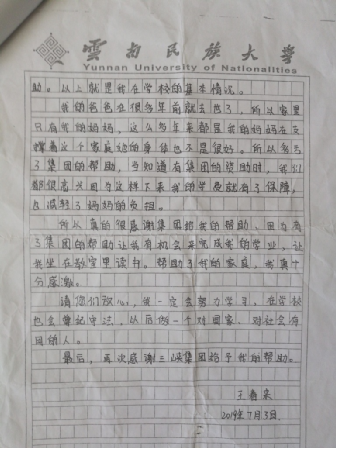 雲南民族大學
Yunnan University of Nationalities
助。以上就是我在学校的基本情况。
我的爸爸在很多年前就去世了，所以家里
只有我的妈妈，这么多年来都是我的妈妈在支
撑着这个家，妈妈的身体也不是很好。所以多亏
了集团的帮助，当知道有集团的资助时，我
很因为这样下来我的学费就有了保障，
也减轻了妈妈的负担。
所以真的很感谢集团给我的帮助，因为有
了集团的帮助让我有机会来完成我的学业，让
我坐在教室里读书。帮助了我的家庭，我真十
分感激。
请你们放心，我一定会努力学习，在学校
也会遵纪守法，以后做一个对国家、对社会有
用的人。
最后，再次感谢三峡集团给予我的帮助。
王春
2019年7月3日